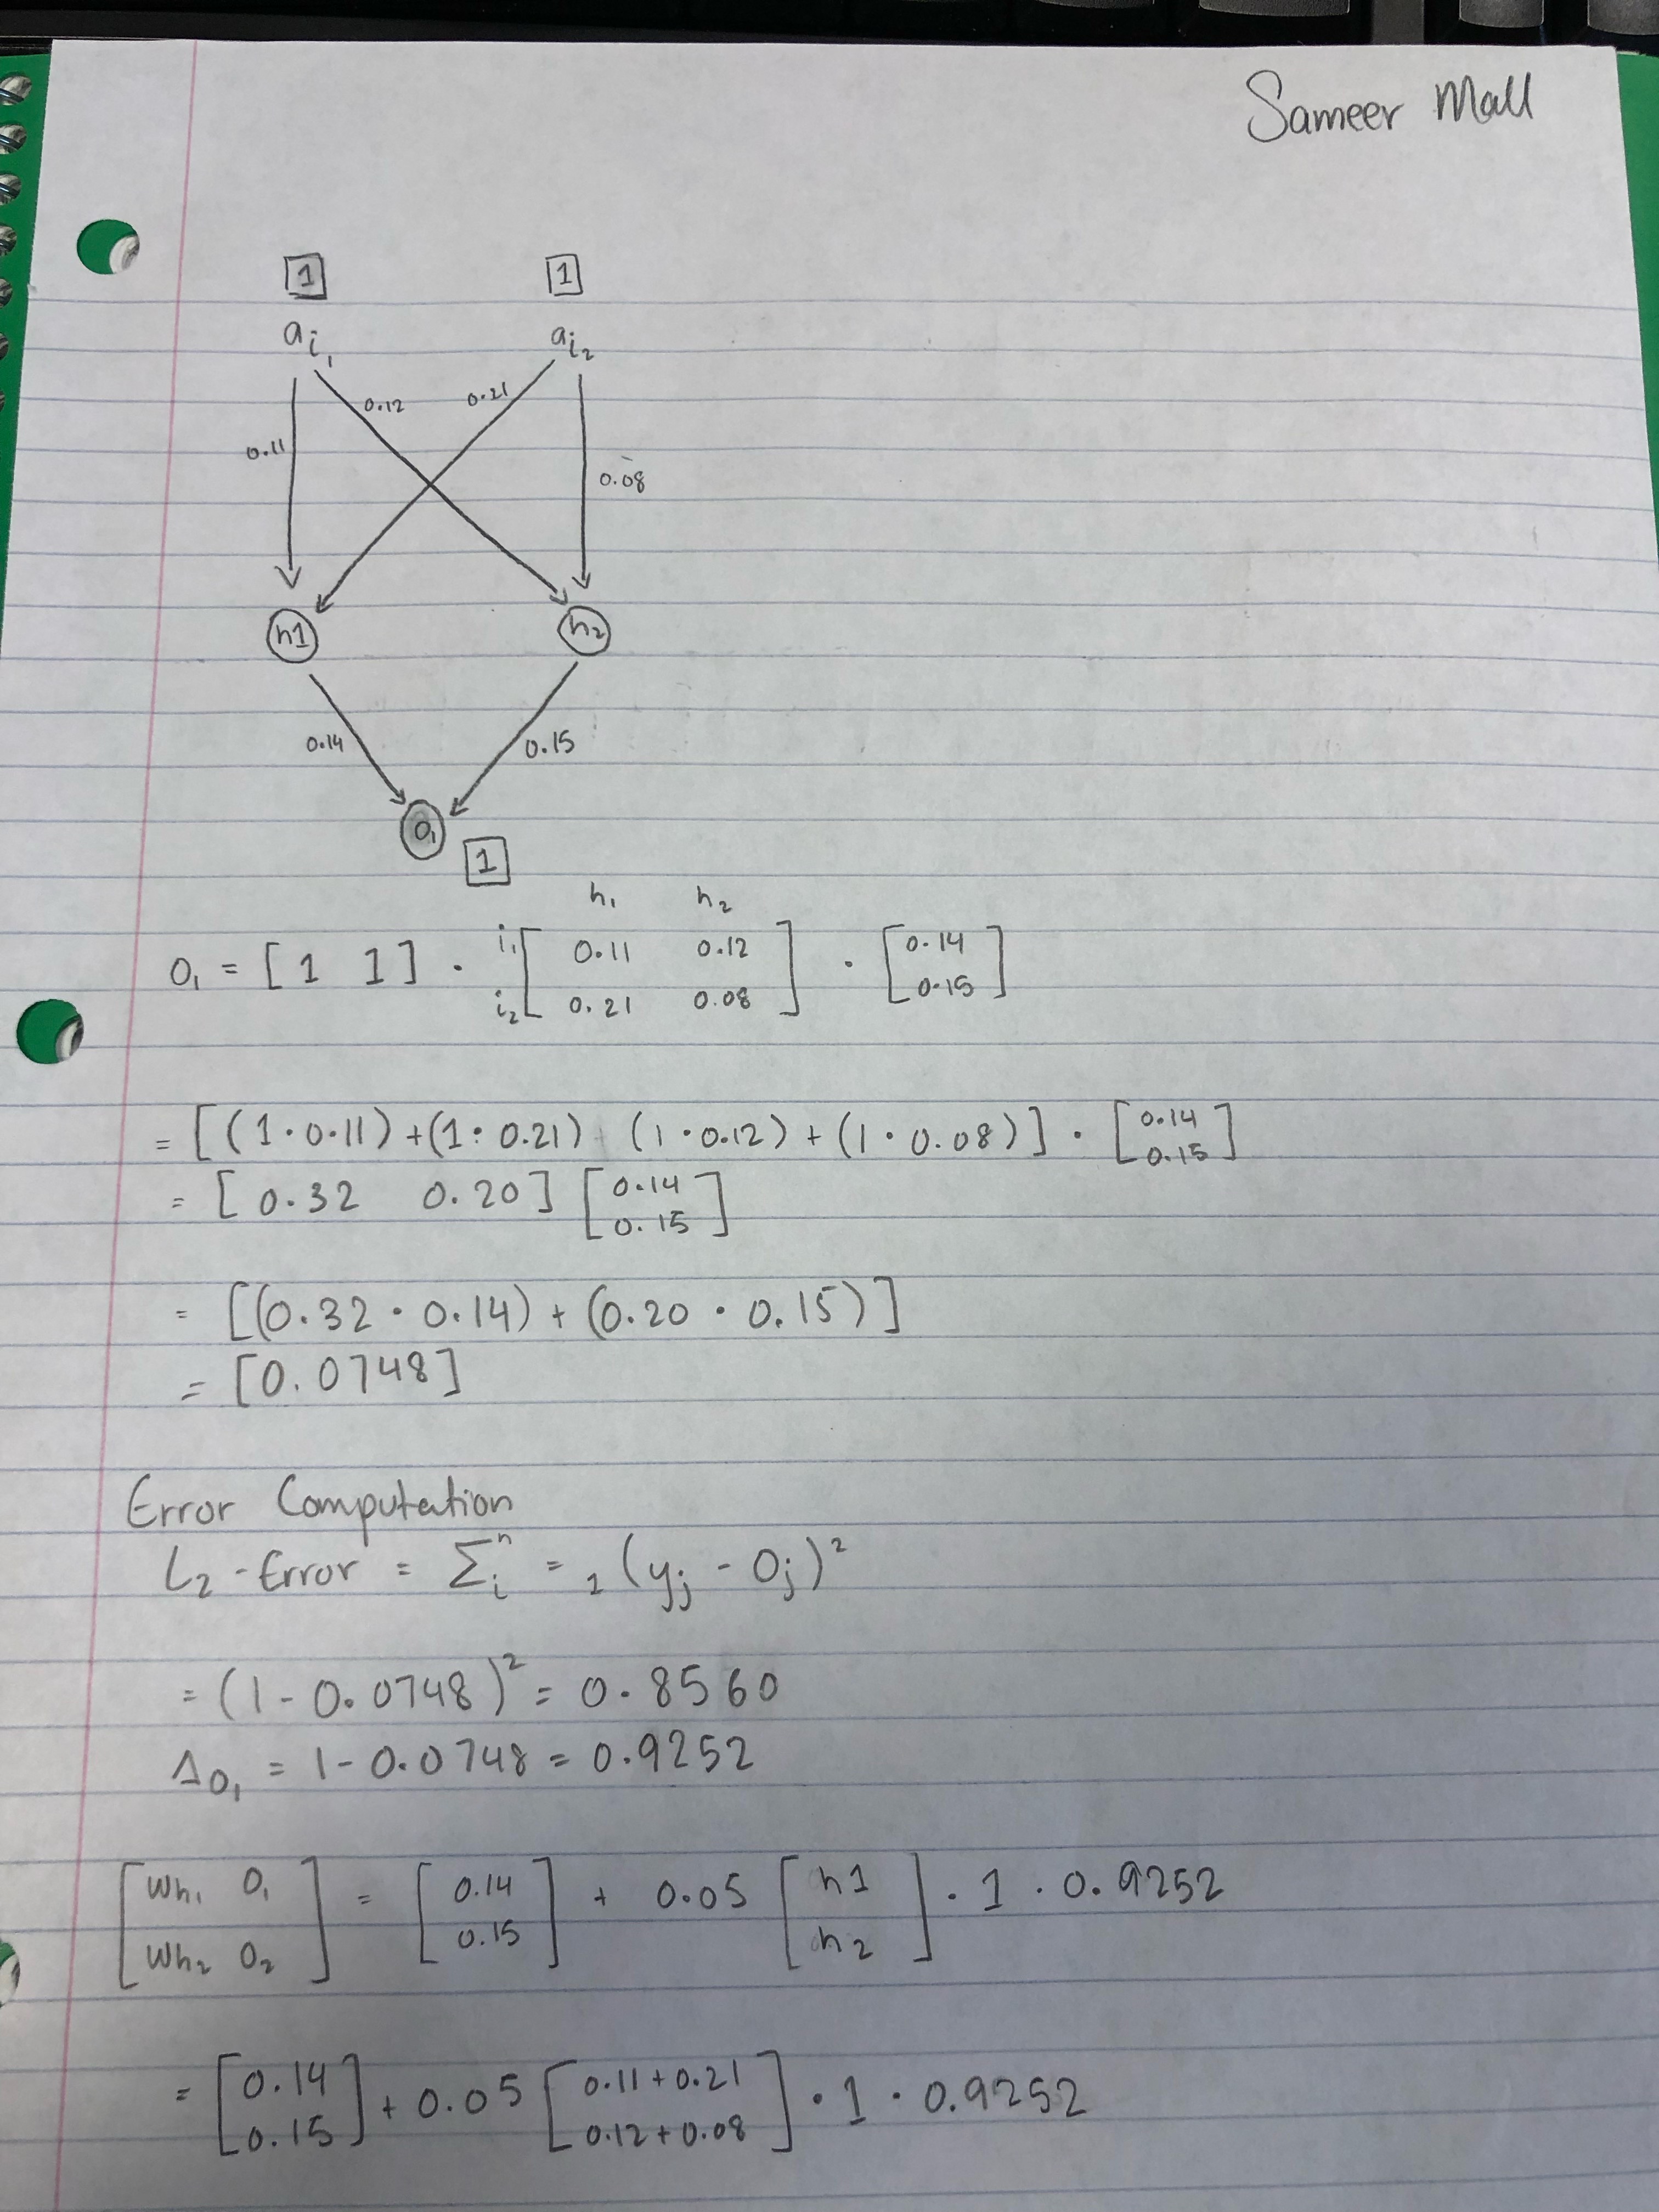 Sameer Mall
1 1
a_i₁ a_i₂
0.12 0.21
0.11 0.08
h1 h2
0.14 0.15
O₁
1
h₁ h₂
O₁ = [ 1 1 ] · i₁ i₂ [ 0.11 0.12 ; 0.21 0.08 ] · [ 0.14 ; 0.15 ]
= [ (1 · 0.11) + (1 · 0.21) (1 · 0.12) + (1 · 0.08) ] · [ 0.14 ; 0.15 ]
= [ 0.32 0.20 ] [ 0.14 ; 0.15 ]
= [(0.32 · 0.14) + (0.20 · 0.15)]
= [0.0748]
Error Computation
L₂ - Error = Σᵢⁿ = ₁ (yⱼ - Oⱼ)²
= (1 - 0.0748)² = 0.8560
Δo₁ = 1 - 0.0748 = 0.9252
[ Wh₁ O₁ ; Wh₂ O₂ ] = [ 0.14 ; 0.15 ] + 0.05 [ h1 ; h2 ] · 1 · 0.9252
= [ 0.14 ; 0.15 ] + 0.05 [ 0.11 + 0.21 ; 0.12 + 0.08 ] · 1 · 0.9252